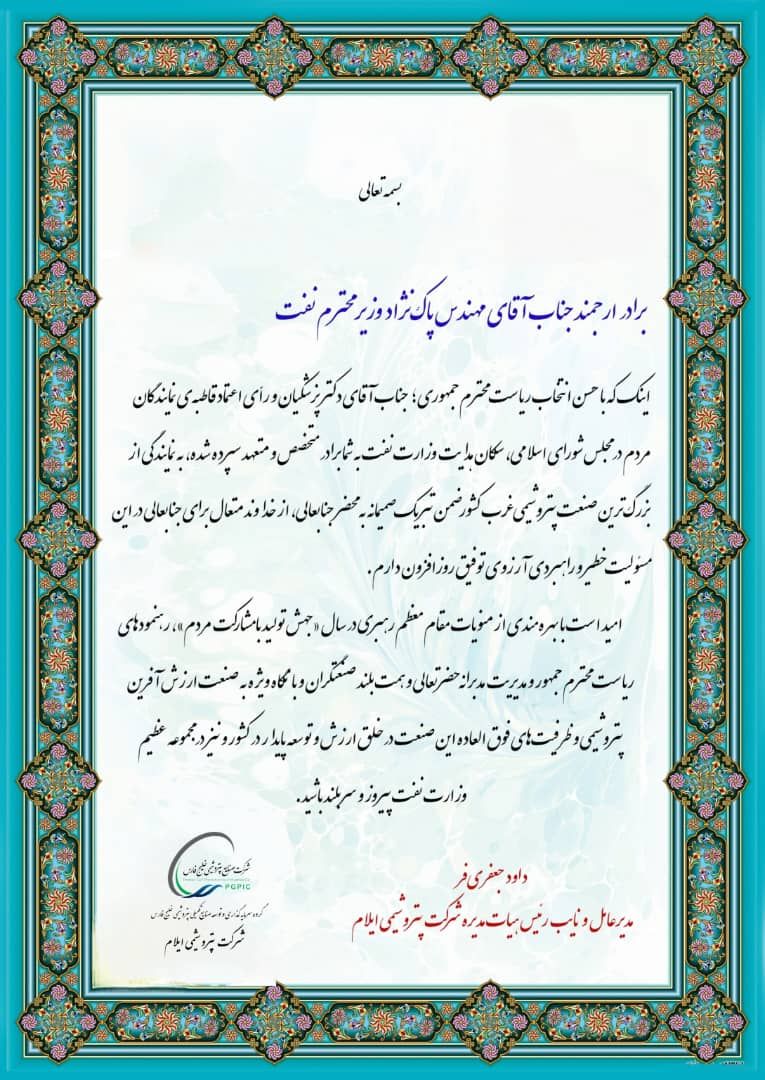 بسمه تعالی
برادر ارجمند جناب آقای مهندس پاک‌نژاد وزیر محترم نفت
اینک که با حسن انتخاب ریاست محترم جمهوری؛ جناب آقای دکتر پزشکیان و رأی اعتماد قاطبه‌ی نمایندگان
مردم در مجلس شورای اسلامی، سکان هدایت وزارت نفت به شما برادر متخصص و متعهد سپرده شده، به نمایندگی از
بزرگ‌ترین صنعت پتروشیمی غرب کشور ضمن تبریک صمیمانه به محضر جنابعالی، از خداوند متعال برای جنابعالی در این
مسئولیت خطیر و راهبردی آرزوی توفیق روزافزون دارم.
امید است با بهره مندی از منویات مقام معظم رهبری در سال «جهش تولید با مشارکت مردم»، رهنمودهای
ریاست محترم جمهور و مدیریت مدبرانه حضرتعالی و همت بلند صنعتگران و با نگاه ویژه به صنعت ارزش آفرین
پتروشیمی و ظرفیت‌های فوق العاده این صنعت در خلق ارزش و توسعه پایدار در کشور و نیز در مجموعه عظیم
وزارت نفت پیروز و سربلند باشید.
داود جعفری فر
مدیرعامل و نایب رئیس هیات مدیره شرکت پتروشیمی ایلام
شرکت صنایع پتروشیمی خلیج فارس
PGPIC
گروه سرمایه گذاری و توسعه صنایع تکمیلی پتروشیمی خلیج فارس
شرکت پتروشیمی ایلام